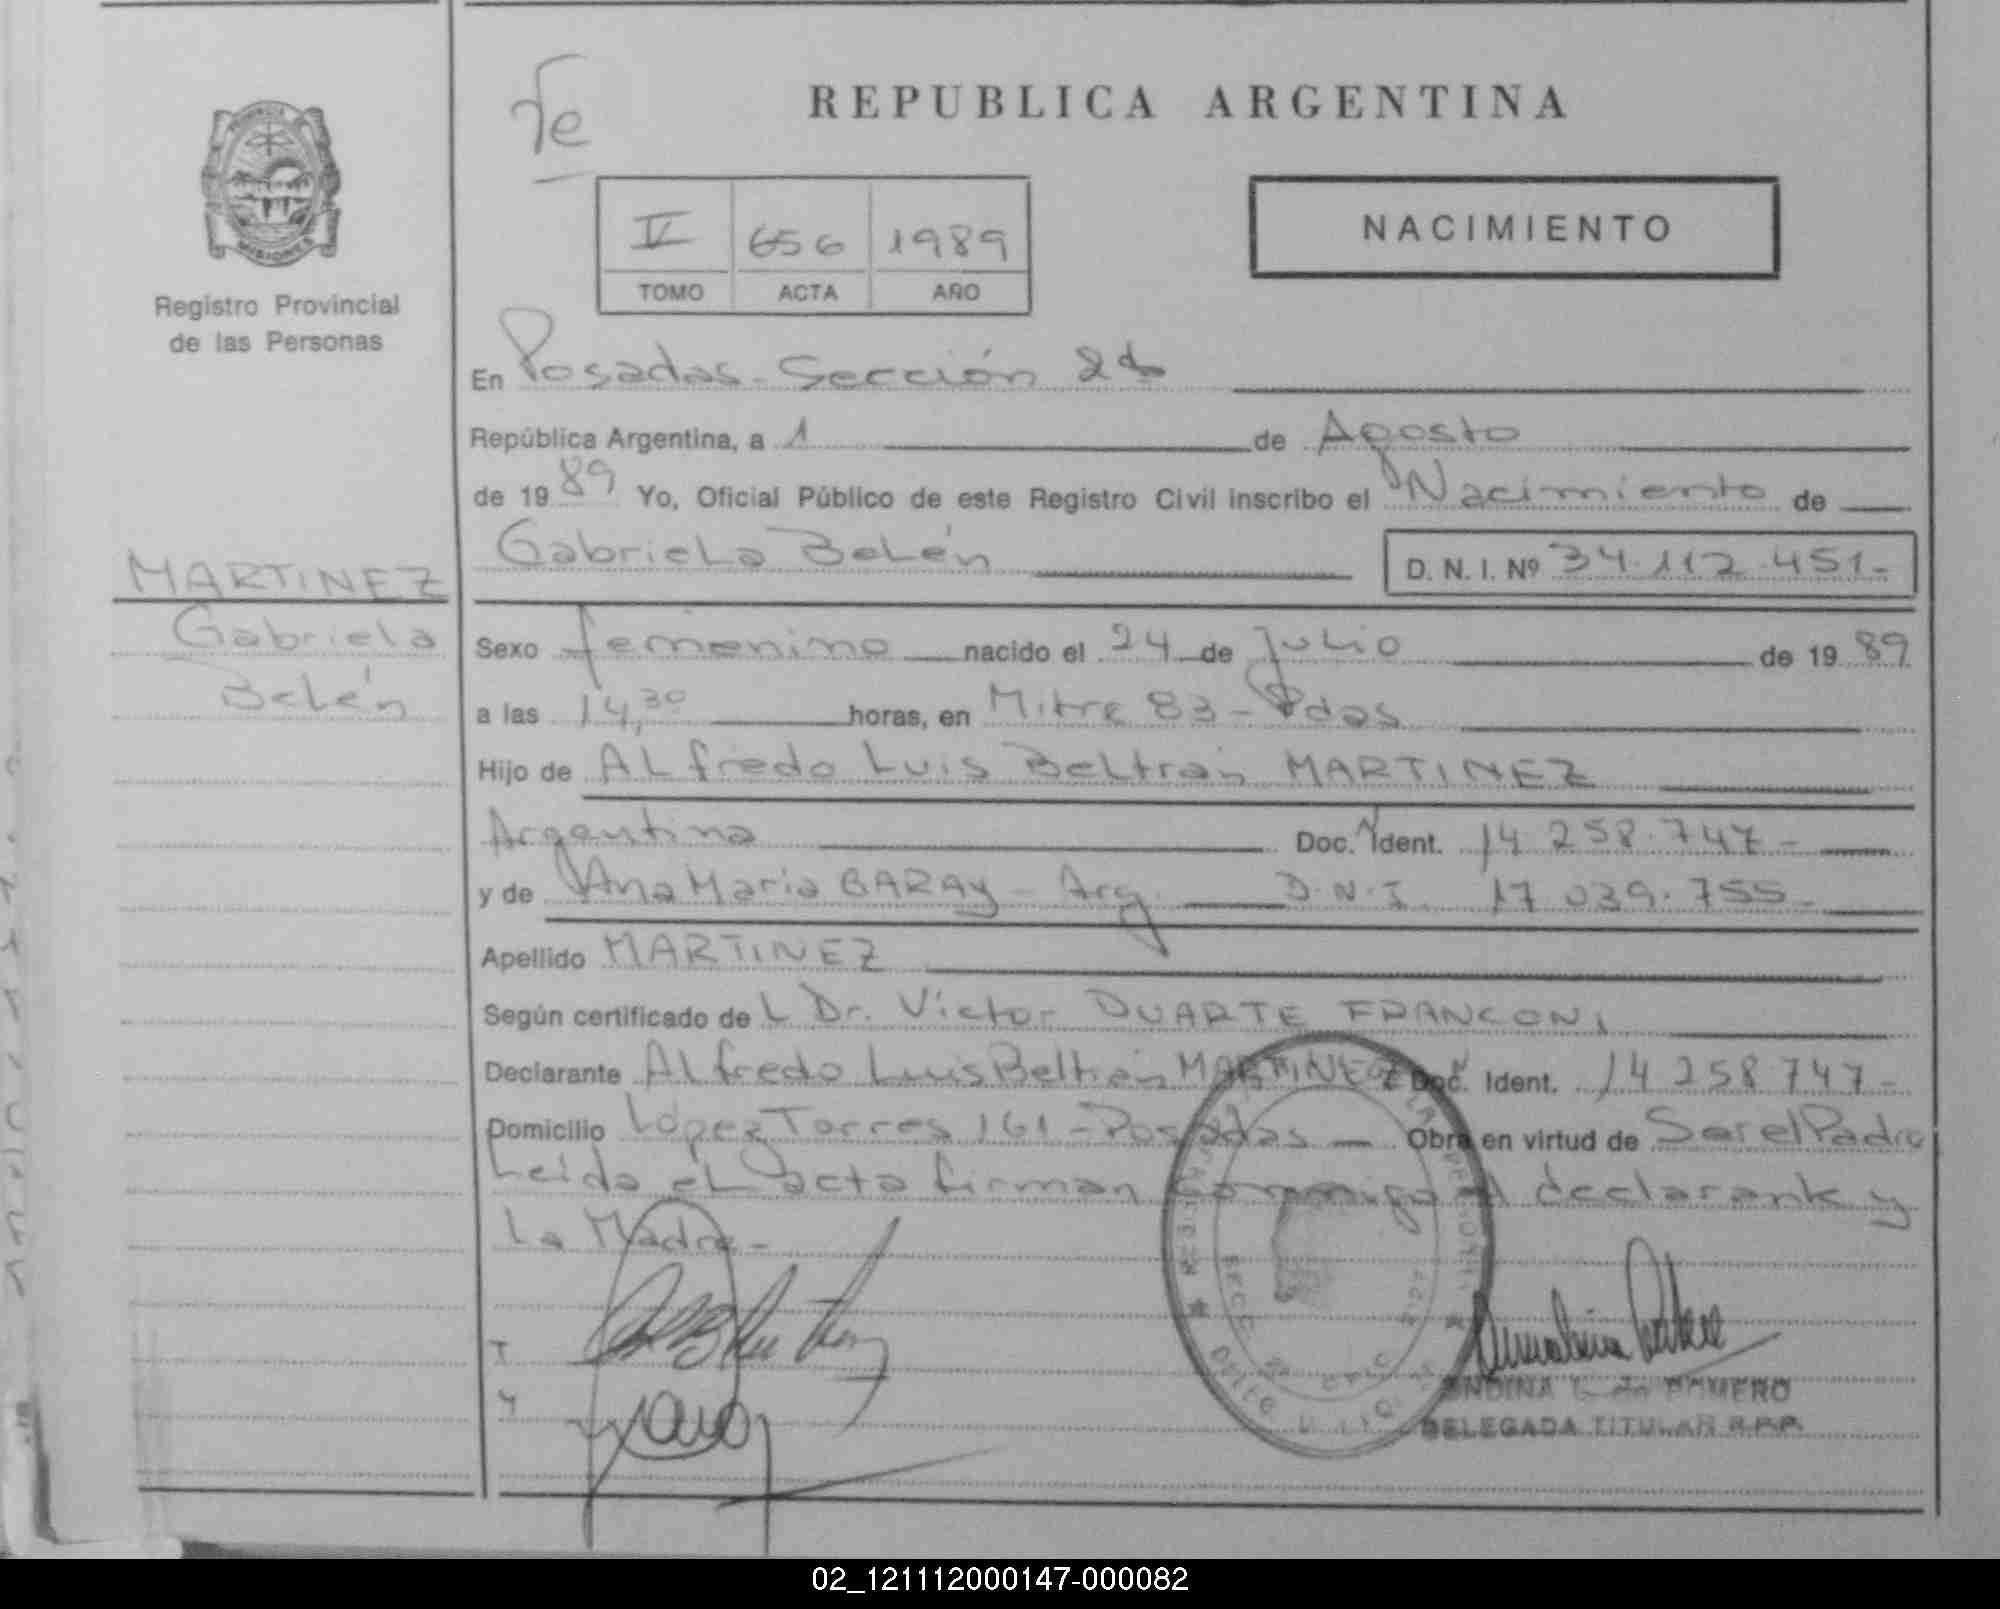 Te
REPUBLICA ARGENTINA
PROVINCIA
MISIONES
Registro Provincial
de las Personas
V 656 1989
TOMO ACTA AÑO
NACIMIENTO
En Posadas - Sección 2da
República Argentina, a 1 de Agosto
de 19 89 Yo, Oficial Público de este Registro Civil inscribo el Nacimiento de
Gabriela Belén D. N. I. Nº 34.112.451-
MARTINEZ
Gabriela
Belén
Sexo femenino nacido el 24 de Julio de 19 89
a las 14,30 horas, en Mitre 83 - Pdas
Hijo de Alfredo Luis Beltrán MARTINEZ
Argentina Doc. Ident. 14 258.747-
y de Ana Maria GARAY - Arg. D.N.I. 17 039.755-
Apellido MARTINEZ
Según certificado de L Dr. Victor DUARTE FRANCONI
Declarante Alfredo Luis Beltrán MARTINEZ Doc. Ident. 14 258 747-
Domicilio López Torres 161 - Posadas - Obra en virtud de Ser el Padre
Leída el acta firman conmigo el declarante y
La Madre -
DELEGADA TITULAR R.P.P.
02_121112000147-000082